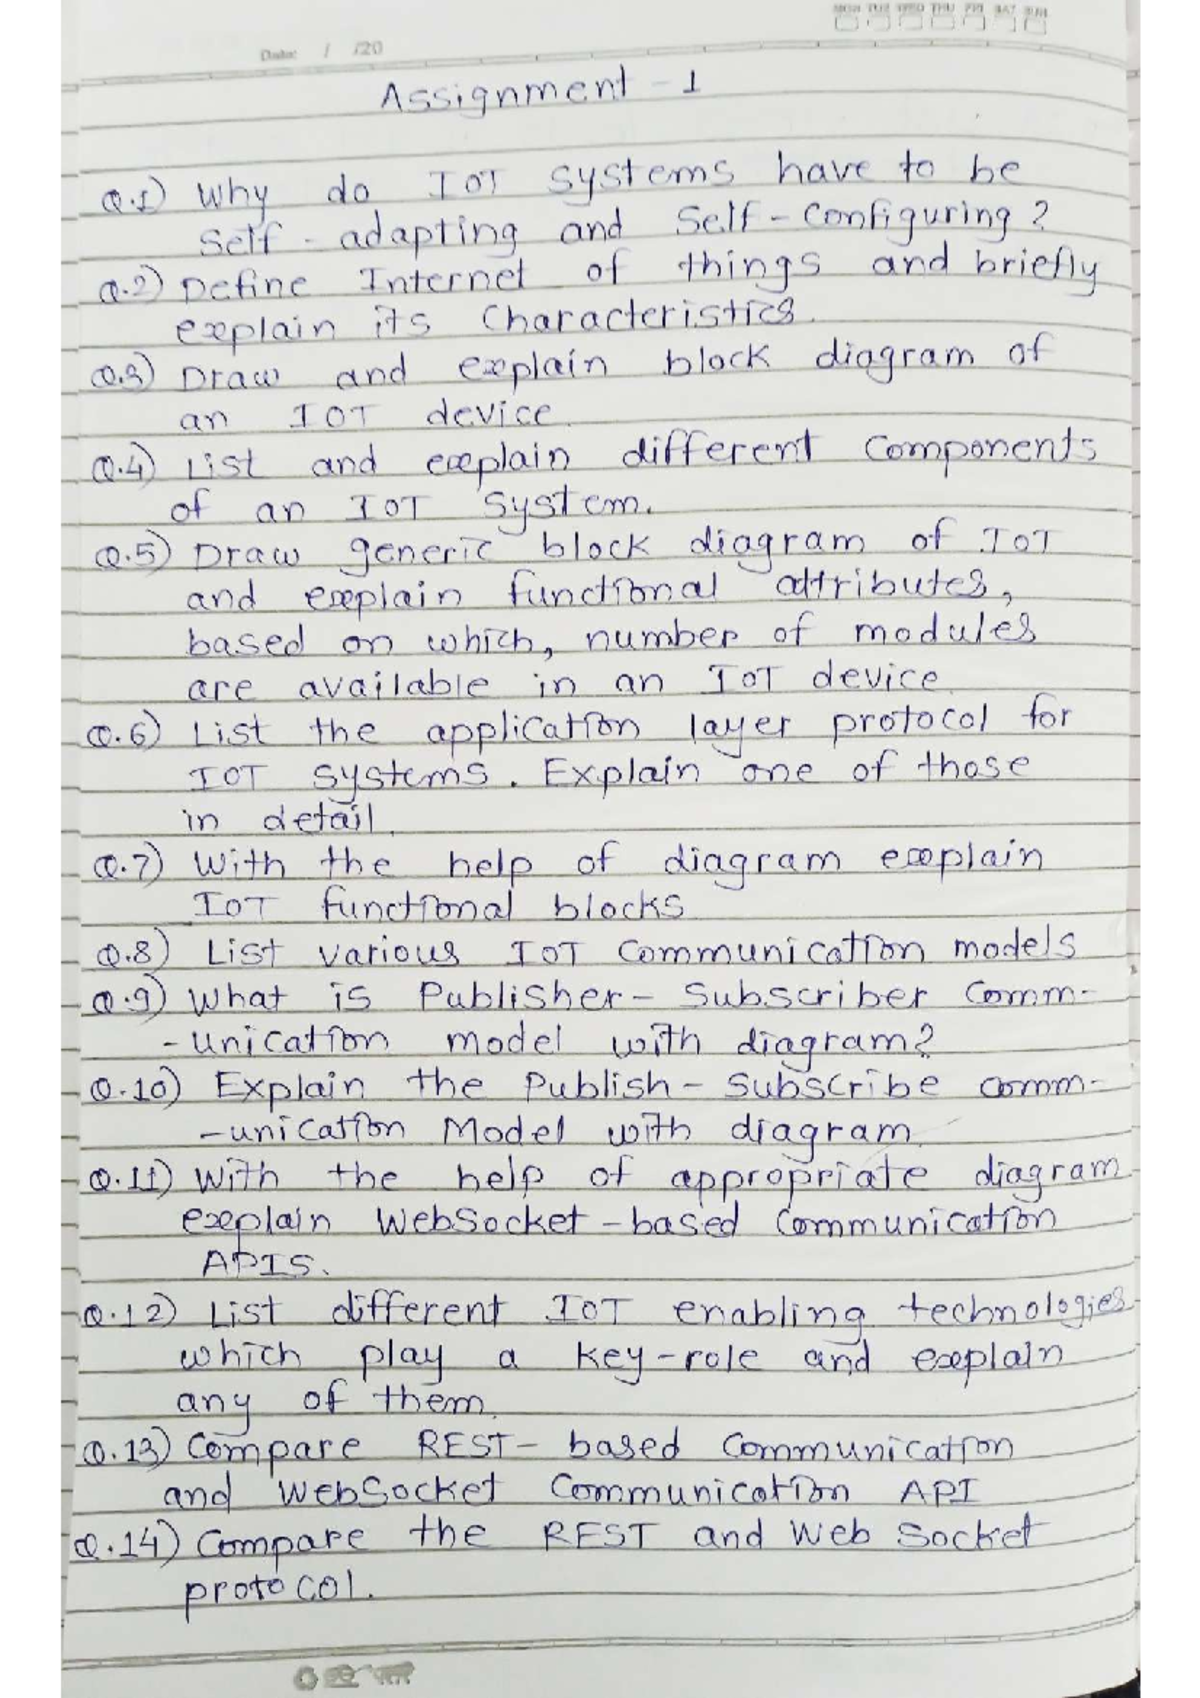 MON TUE WED THU FRI SAT SUN
Date: / /20
Assignment - 1
Q.1) Why do IOT systems have to be
Self - adapting and Self - Configuring ?
Q.2) Define Internet of things and briefly
explain its Characteristics.
Q.3) Draw and explain block diagram of
an IOT device.
Q.4) List and explain different Components
of an IOT System.
Q.5) Draw generic block diagram of IOT
and explain functional attributes,
based on which, number of modules
are available in an IOT device.
Q.6) List the application layer protocol for
IOT systems. Explain one of those
in detail.
Q.7) With the help of diagram explain
IOT functional blocks
Q.8) List various IOT Communication models
Q.9) What is Publisher - Subscriber Comm-
- unication model with diagram?
Q.10) Explain the Publish - Subscribe comm-
- unication Model with diagram.
Q.11) With the help of appropriate diagram
explain WebSocket - based Communication
APIS.
Q.12) List different IOT enabling technologies
which play a key-role and explain
any of them.
Q.13) Compare REST - based Communication
and WebSocket Communication API
Q.14) Compare the REST and Web Socket
protocol.